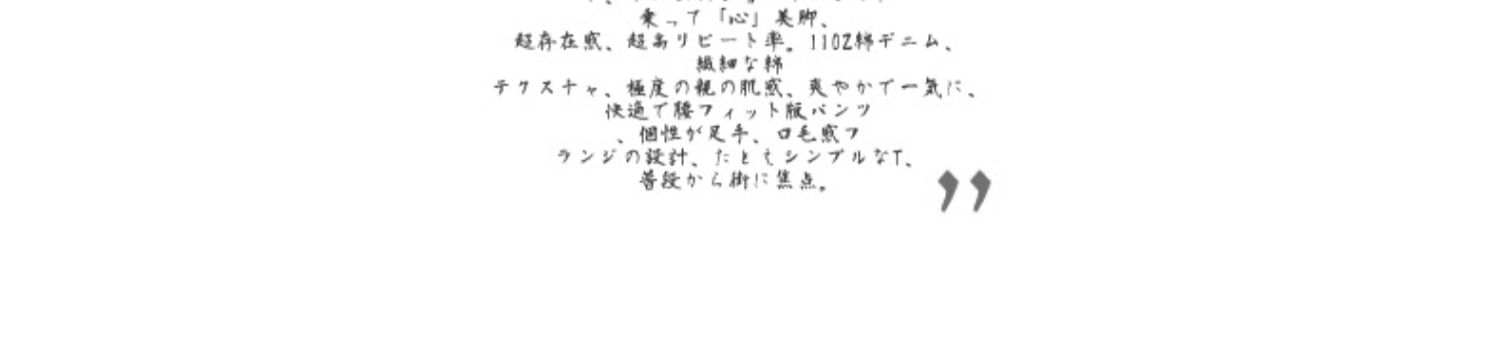 乗って「心」美脚、
超存在感、超高リピート率。11OZ綿デニム、
繊細な綿
テクスチャ、極度の親の肌感、爽やかで一気に、
快適で腰フィット版パンツ
、個性が足手、口毛感フ
ランジの設計、たとえシンプルなT、
普段から街に焦点。
”